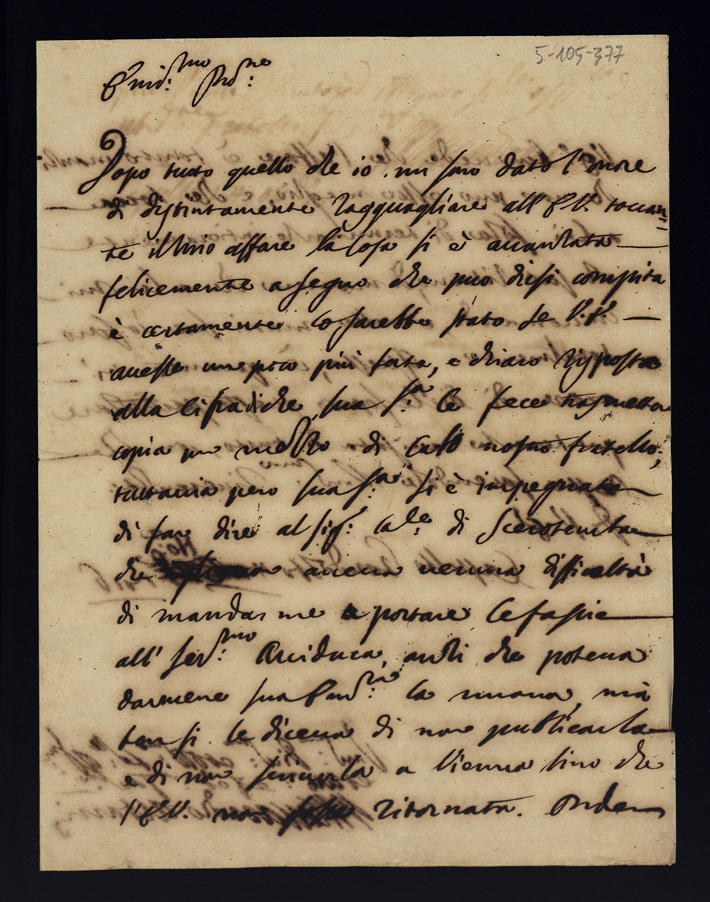 5-105-377
Em.mo Prne:
Dopo tutto quello che io mi sono dato l'onore
di distintamente ragguagliare all' E.V. toccan=
te il mio affare la cosa si è accordata
felicemente a segno che può dirsi compita
è certamente lo sarebbe stato se V.E.
avesse un poco più fatta, e chiara risposta
alla cifra di che sua S.tà le fece trasmetter
copia per mezzo di nostro fratello;
tuttavia però sua S.tà si è impegnata
di far dire al Sig.r Cale di
che aveva nessuna difficoltà
di mandarme a portare le fascie
all' Ser.mo Arciduca, anzi che poteva
darmene sua Em.za la nuova, mà
ben si le diceva di non publicarla
e di non scriverla a Vienna sino che
l'E.V. non fosse ritornata. Onde